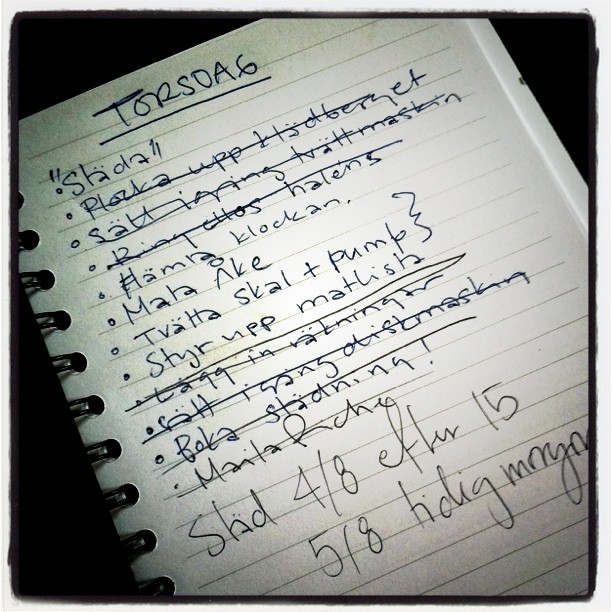 TORSDAG
"Städa"
• Plocka upp klädberget
• Sätt igång tvättmaskin
• Ring ottos halens
• Hämta klockan.
• Mata Åke
• Tvätta skal + pump }
• Styr upp matlista
• Lägg in räkningar
• Sätt igång diskmaskin
• Boka städning!
• Maila
Städ 4/8 efter 15
5/8 tidig morgon